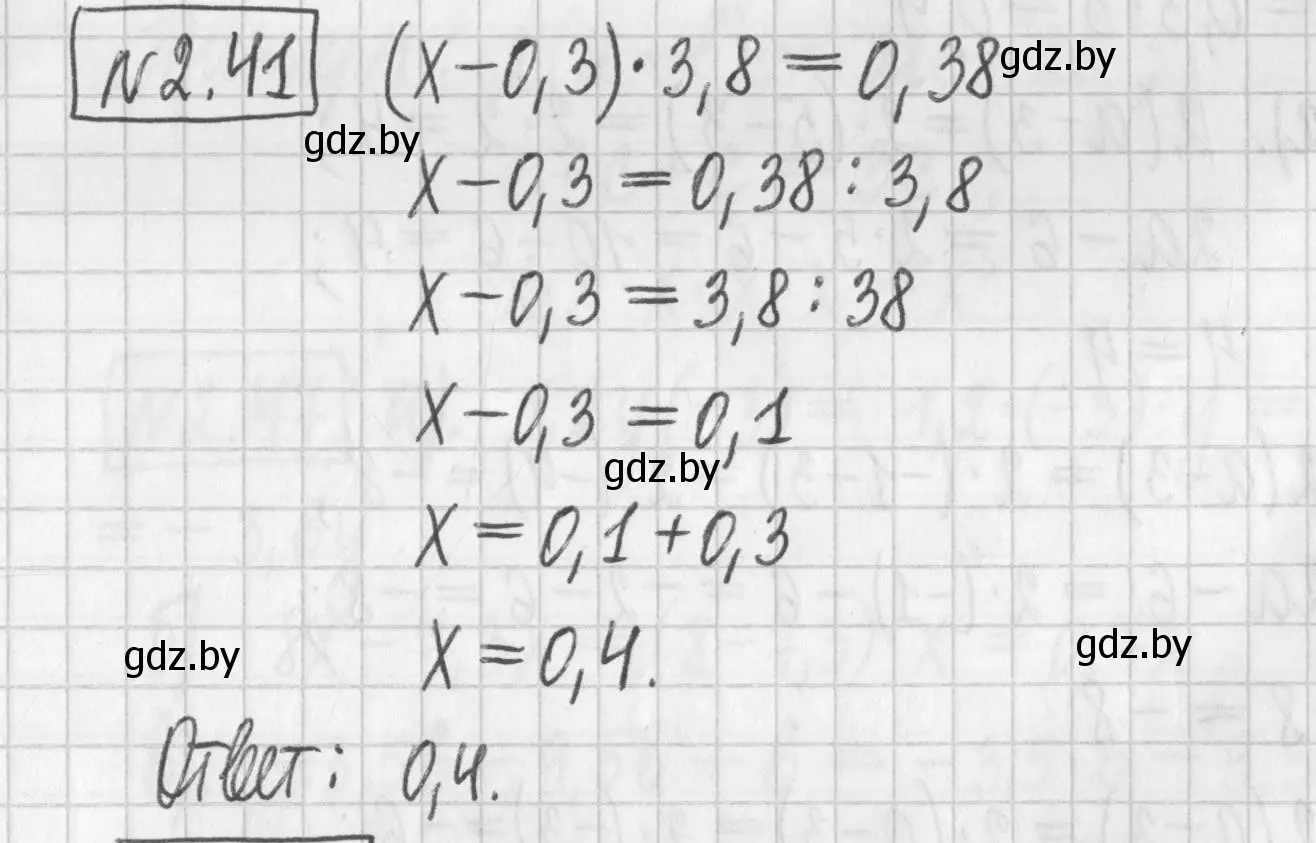 №2.41 (х-0,3)·3,8=0,38 gdz.by
gdz.by
х-0,3=0,38:3,8
х-0,3=3,8:38
х-0,3=0,1
gdz.by
х=0,1+0,3
х=0,4.
gdz.by gdz.by
Ответ: 0,4.